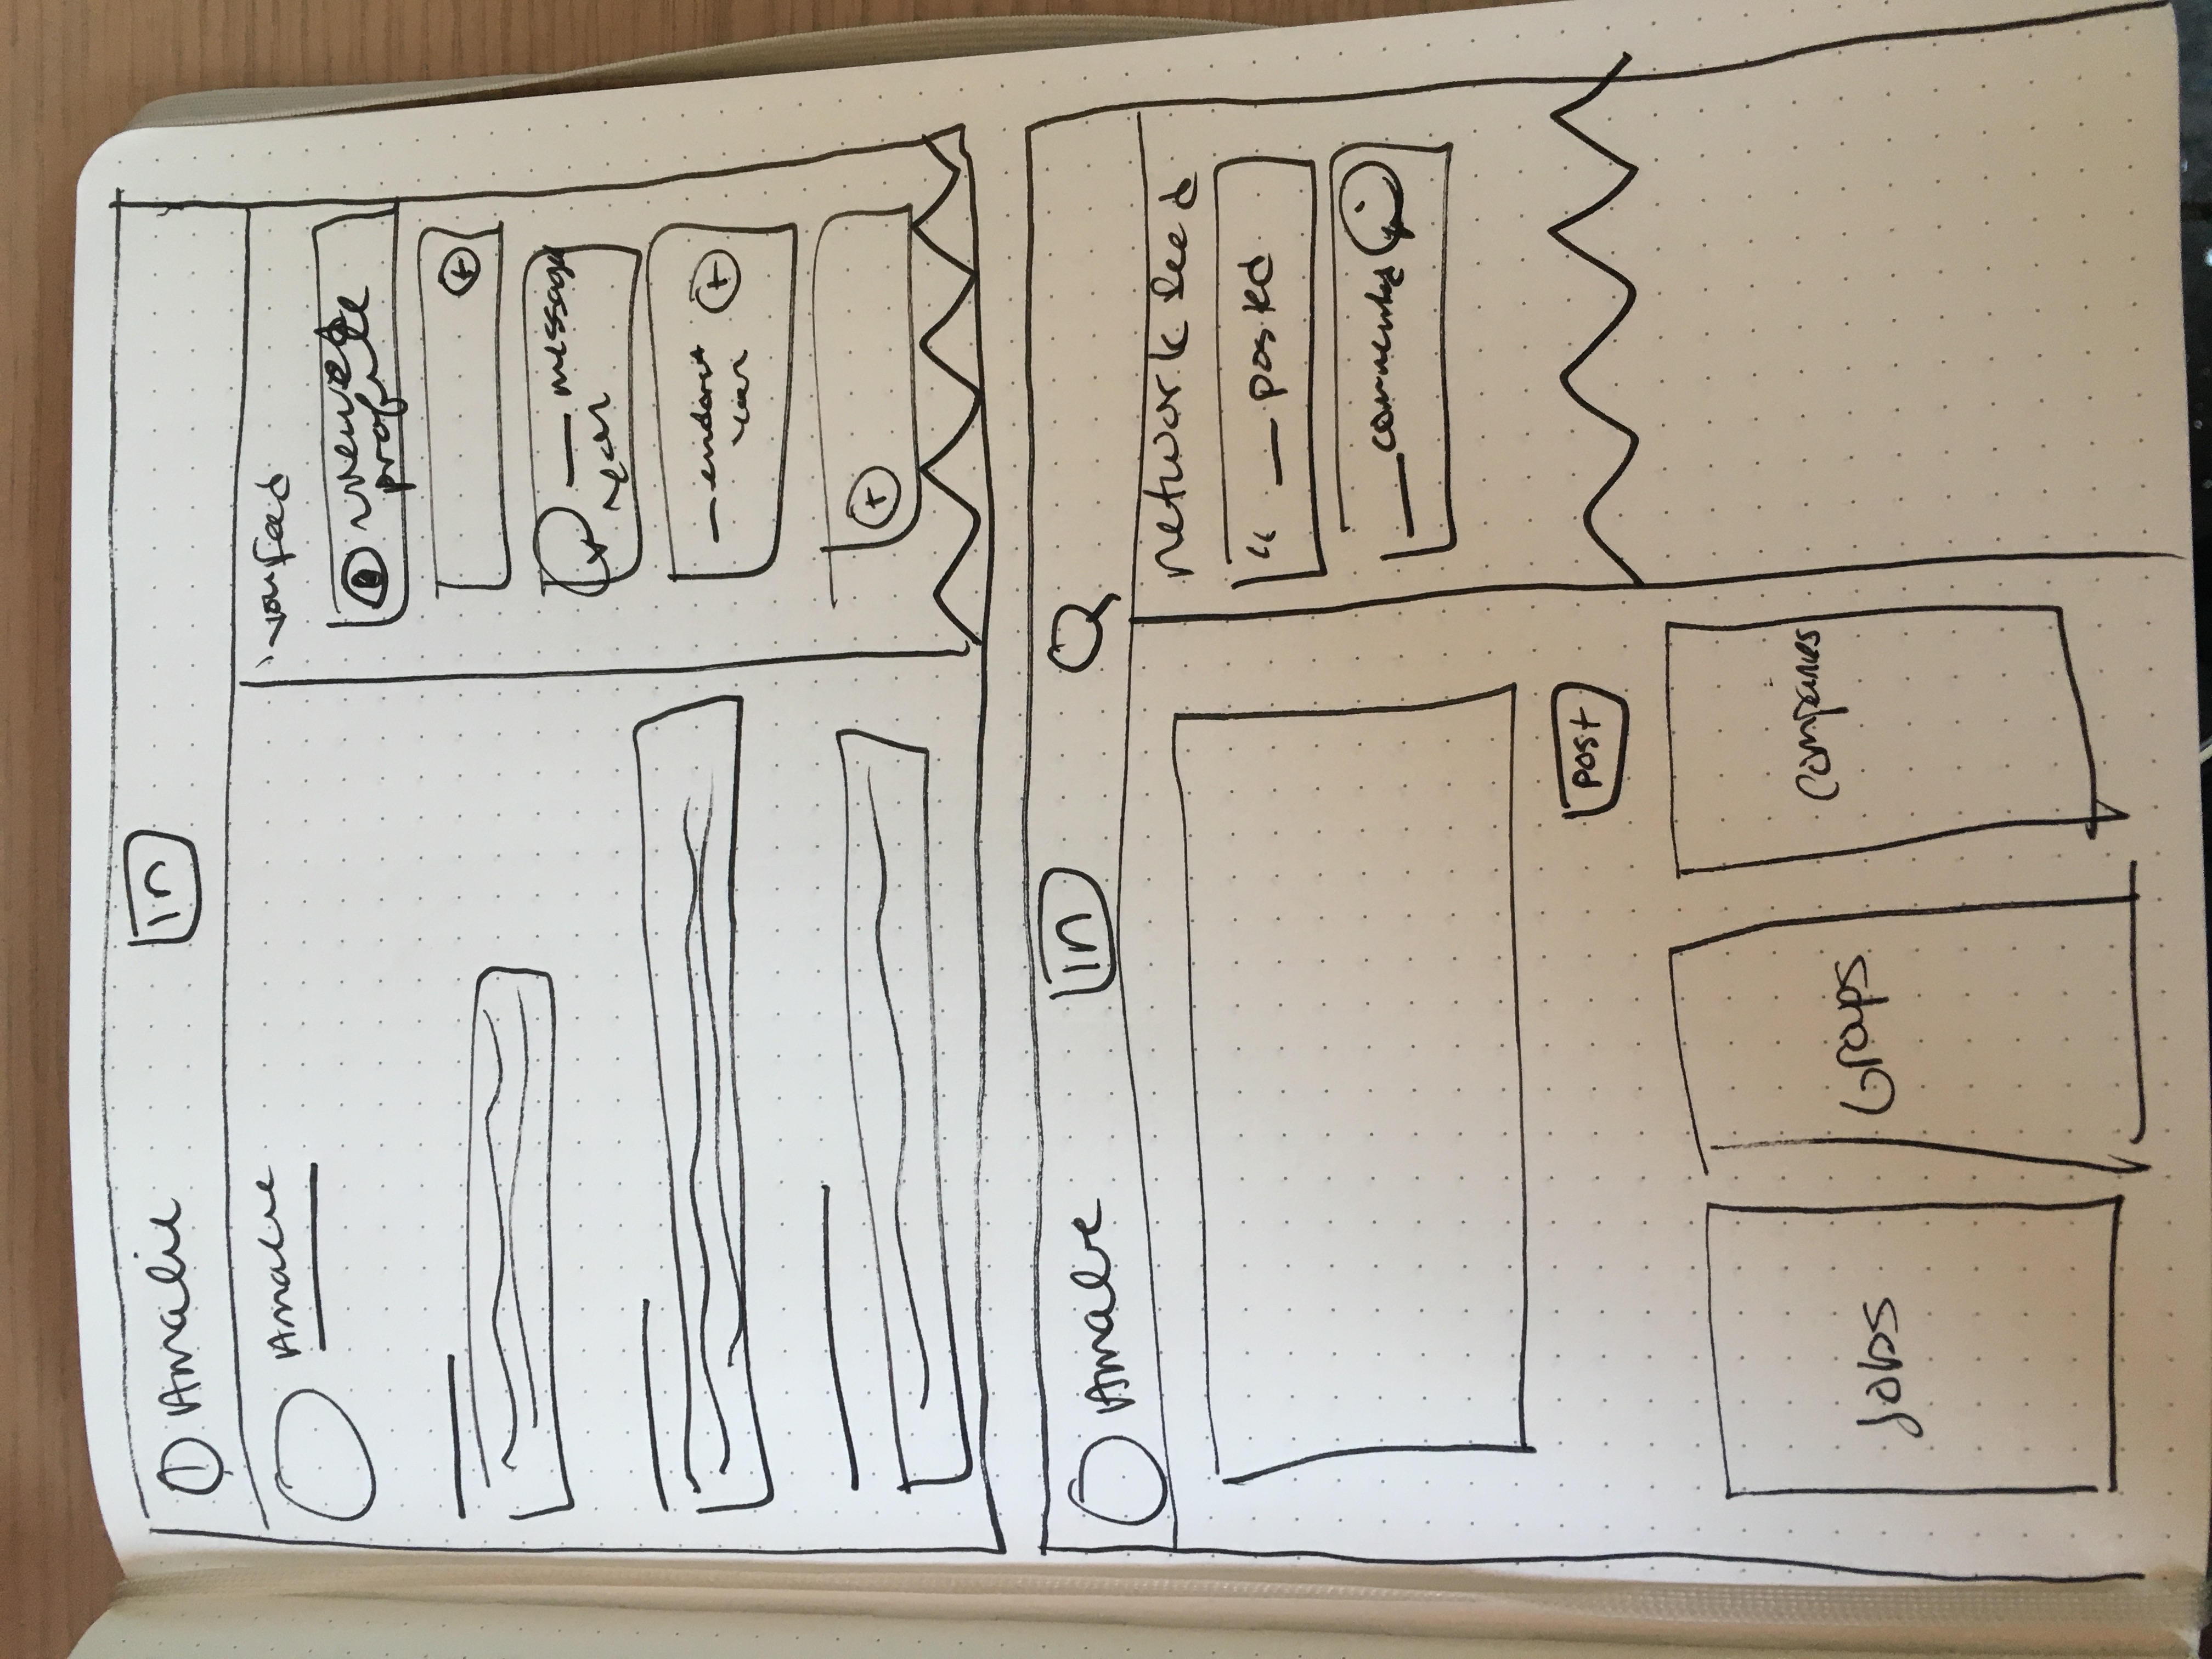 Amalie
in
Amalie
your feed
viewed
profile
— message
you
— endorsed
you
Amalie
in
network feed
“ — posted
— commented
post
Jobs
Groups
Companies